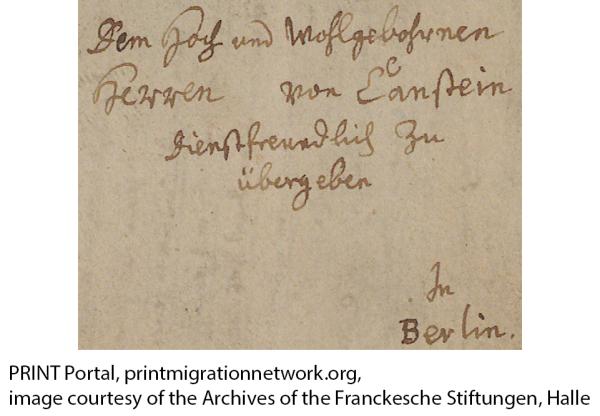 Dem Hoch und Wohlgebohrnen
Herren von Canstein
dienstfreundlich zu
übergeben
In
Berlin.
PRINT Portal, printmigrationnetwork.org,
image courtesy of the Archives of the Franckesche Stiftungen, Halle